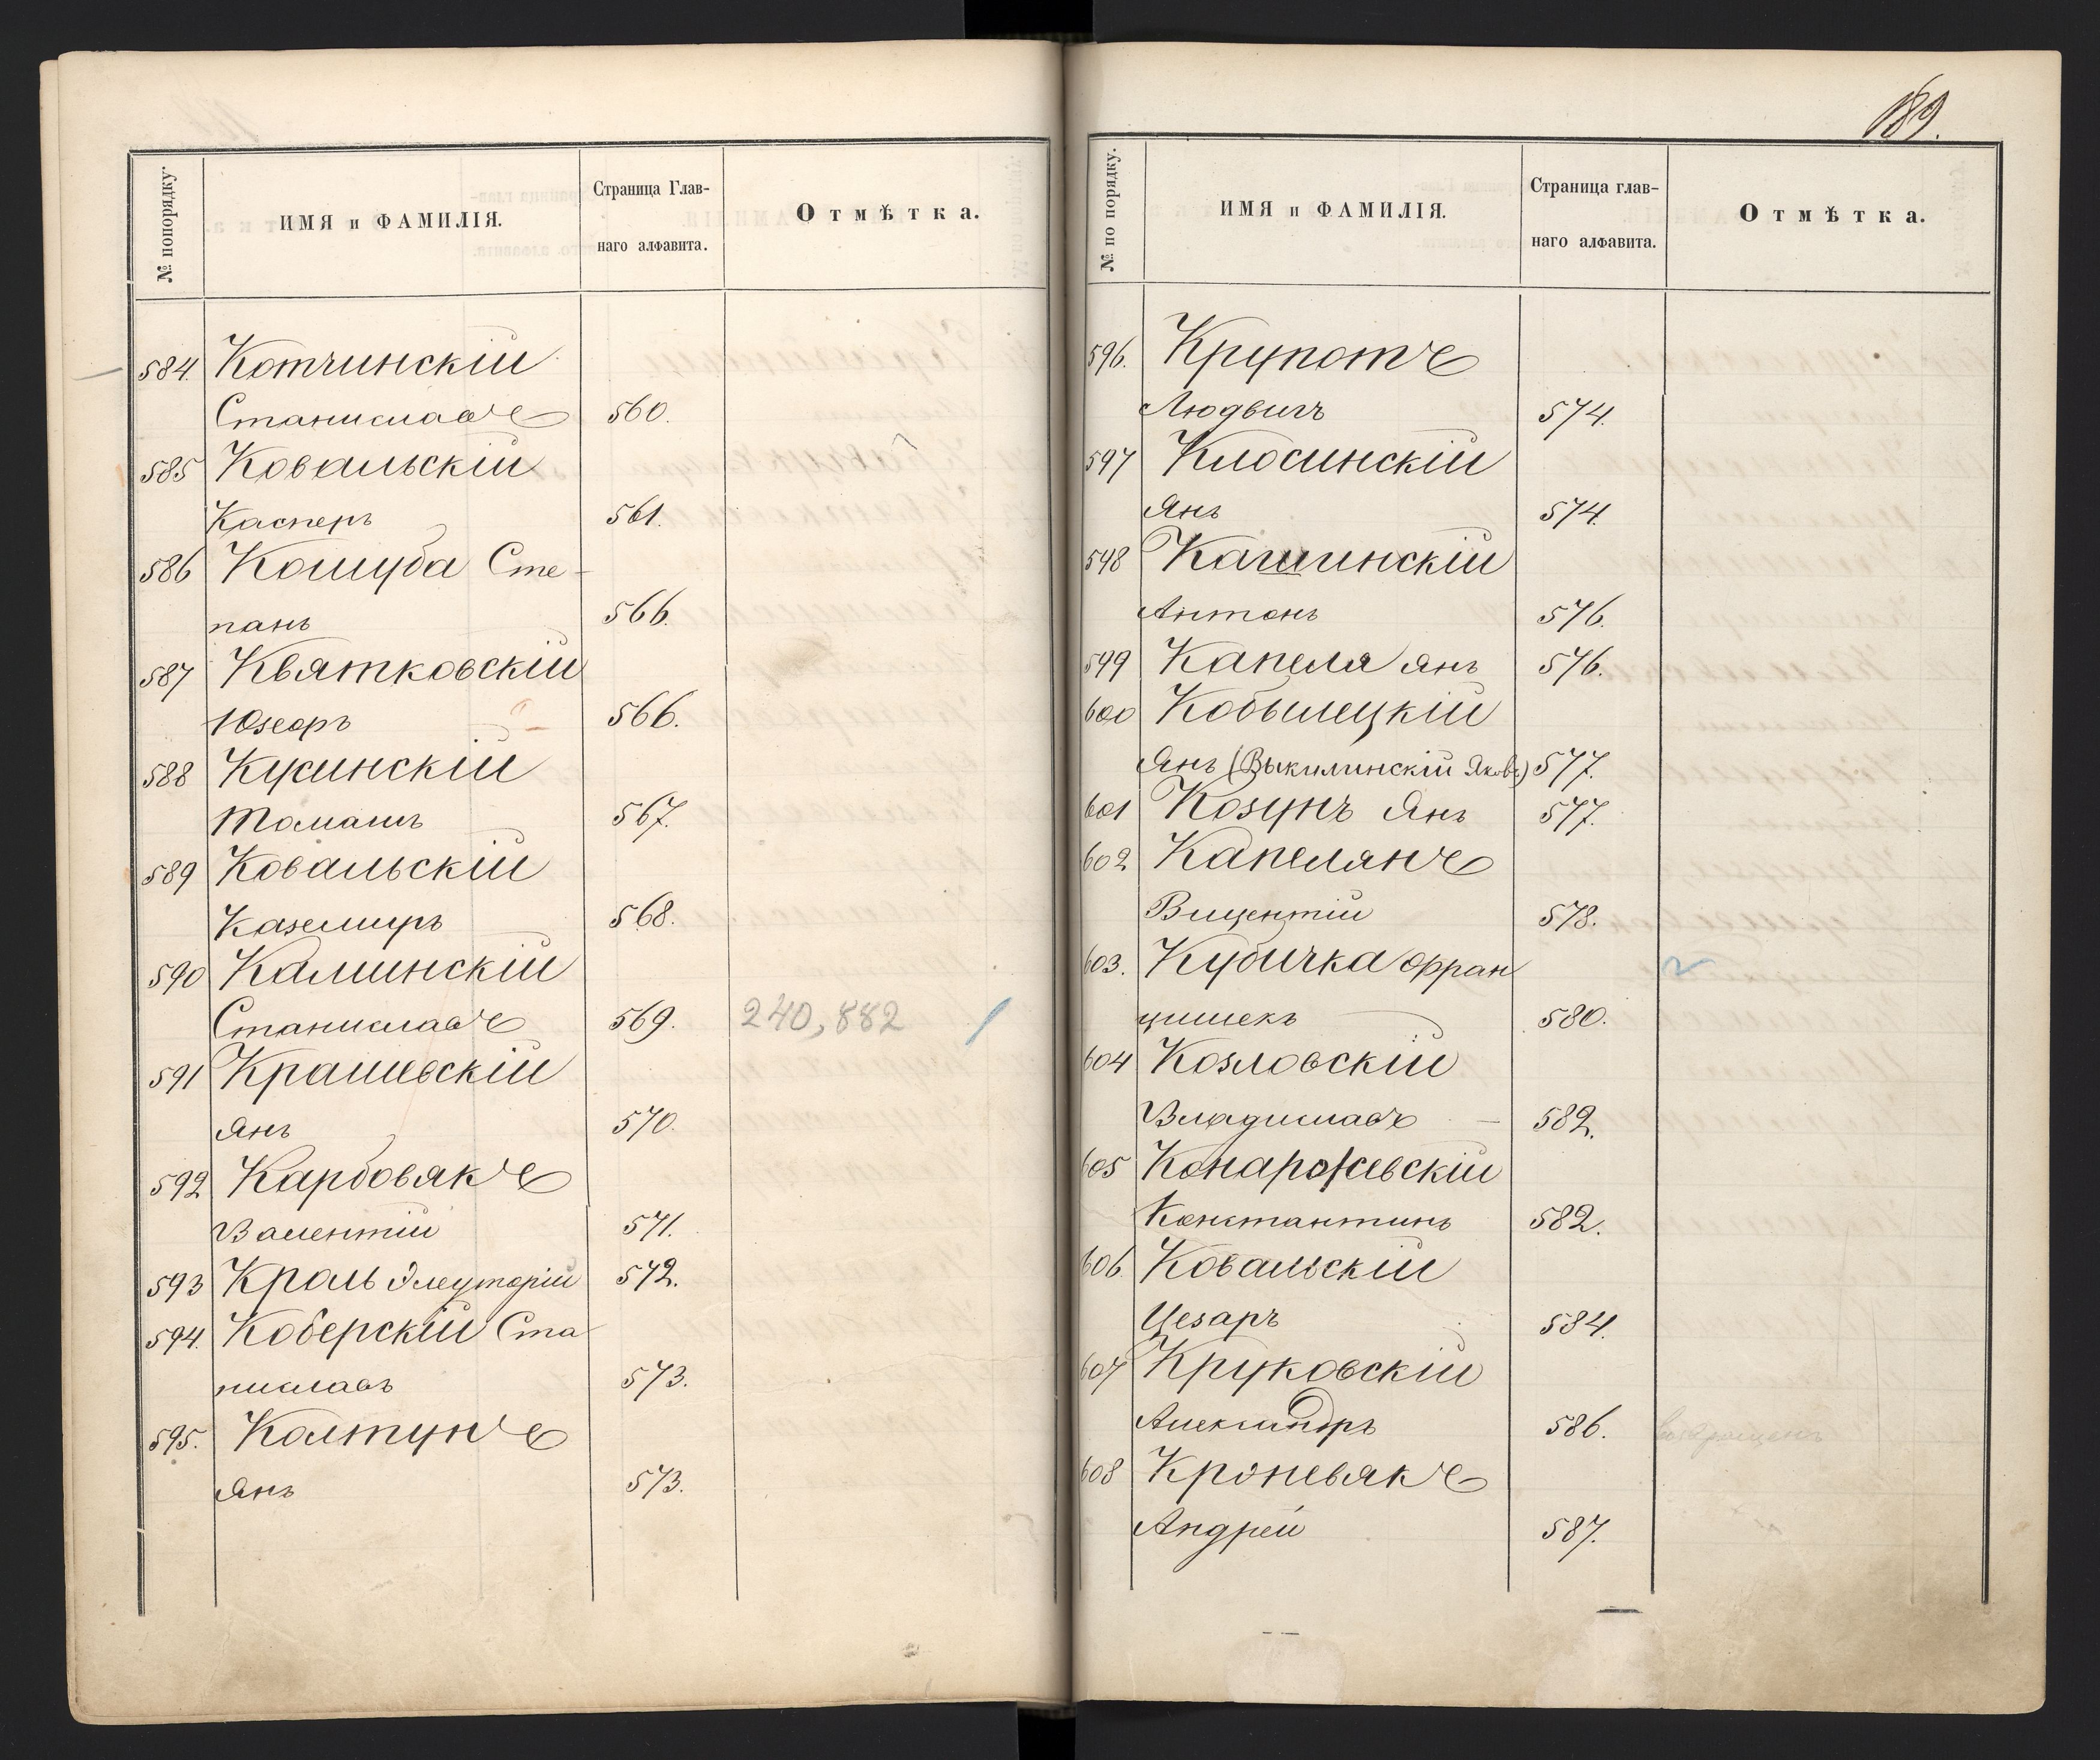 № попорядку.
ИМЯ и ФАМИЛІЯ.
Страница Глав-
наго алфавита.
Отмѣтка.
584. Котчинскій
Станиславъ 560.
585 Ковальскій
Касперъ 561.
586 Кошуба Сте-
панъ 566.
587 Квятковскій
Юзефъ 566.
588 Кусинскій
Томашъ 567.
589 Ковальскій
Каземиръ 568.
590 Калиинскій
Станиславъ 569. 240,882
591 Крашевскій
Янъ 570.
592 Карбовякъ
Валентій 571.
593 Краль Элеуторій 572.
594. Коберскій Ста
ниславъ 573.
595. Колтунъ
Янъ 573.
189.
№ по порядку.
ИМЯ и ФАМИЛІЯ.
Страница глав-
наго алфавита.
Отмѣтка.
596. Крупотъ
Людвигъ 574.
597 Клосинскій
Янъ 574.
598
Антонъ 576.
599 Капеля Янъ 576.
600 Кобылецкій
Янъ (Выкилинскій Яковъ) 577.
601 Козунъ Янъ 577.
602 Капелянъ
Вицентій 578.
603. Кубичка Фран
цишекъ 580.
604 Козловскій
Владиславъ 582.
605 Конаржевскій
Константинъ 582.
606. Ковальскій
Цезаръ 584.
607 Круковскій
Александръ 586. возвращенъ
608 Кроневякъ
Андрей 587.